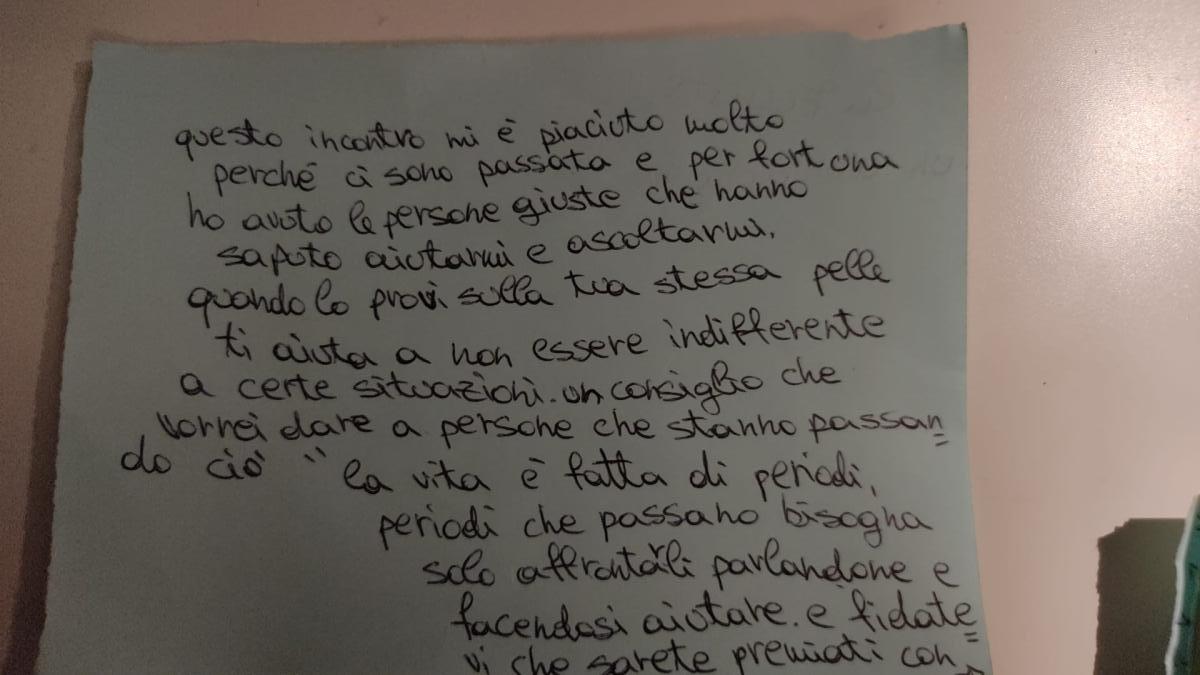 questo incontro mi è piaciuto molto
perché ci sono passata e per fortuna
ho avuto le persone giuste che hanno
saputo aiutarmi e ascoltarmi.
quando lo provi sulla tua stessa pelle
ti aiuta a non essere indifferente
a certe situazioni. un consiglio che
vorrei dare a persone che stanno passan=
do ciò " la vita è fatta di periodi,
periodi che passano bisogna
solo affrontarli parlandone e
facendosi aiutare. e fidate=
vi che sarete premiati con